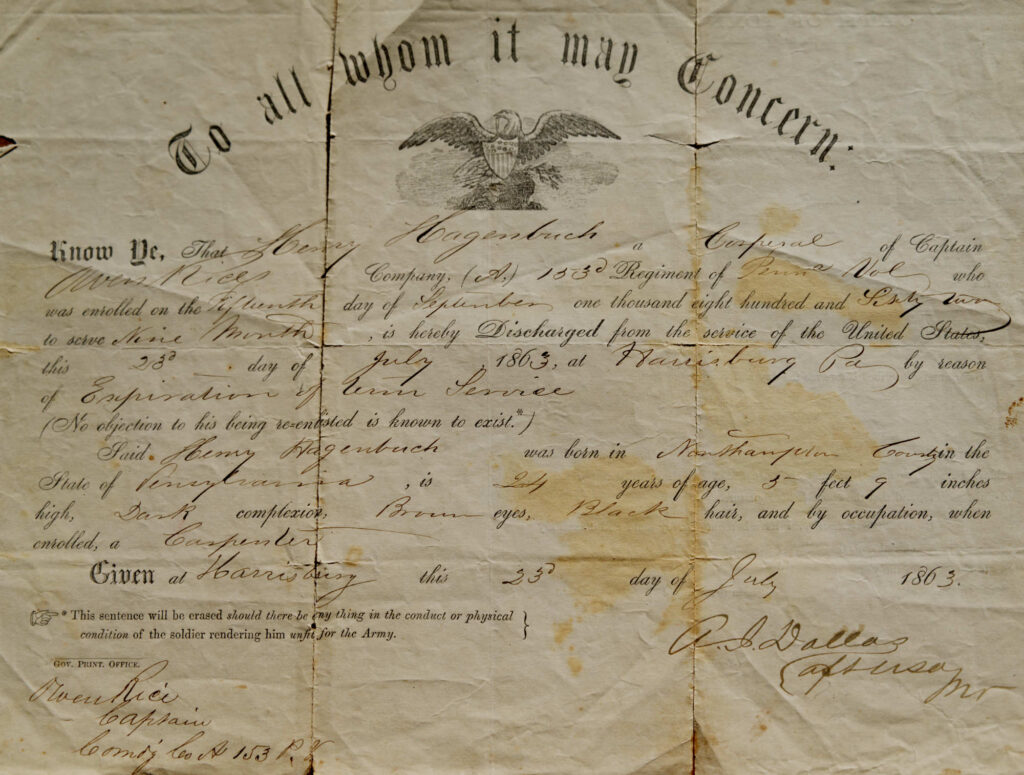 To all whom it may Concern:
Know Ye, That Henry Hagenbuch a Corporal of Captain
Owen Rices Company, (A,) 153d Regiment of Penna Vol who
was enrolled on the Fifteenth day of September one thousand eight hundred and Sixty two
to serve Nine Month , is hereby Discharged from the service of the United States,
this 23d day of July 1863, at Harrisburg Pa by reason
of Expiration of term Service
(No objection to his being re-enlisted is known to exist.*)
Said Henry Hagenbuch was born in Northampton County in the
State of Pensylvania , is 24 years of age, 5 feet 9 inches
high, Dark complexion, Brown eyes, Black hair, and by occupation, when
enrolled, a Carpenter
Given at Harrisburg this 23d day of July 1863.
☞* This sentence will be erased should there be any thing in the conduct or physical
condition of the soldier rendering him unfit for the Army.
Gov. Print. Office.
Owen Rice
Captain
Comdg Co A 153 P. V.
A. J. Dallas
Capt